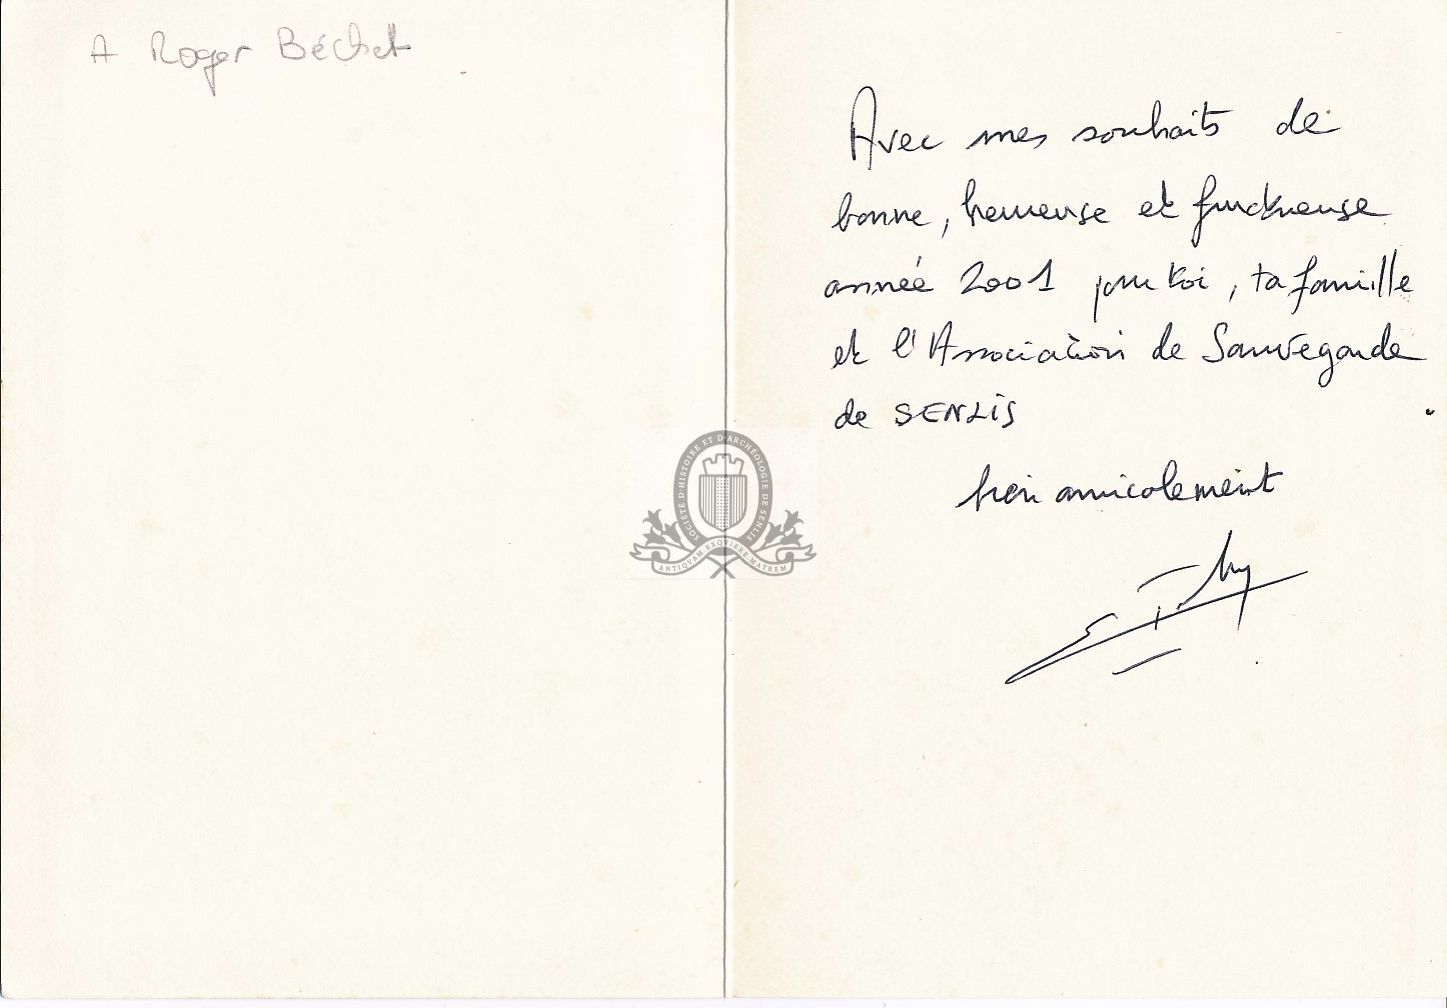 A Roger Béchet
Avec mes souhaits de
bonne, heureuse et fructueuse
année 2001 pour toi, ta famille
et l'Association de Sauvegarde
de SENLIS
bien amicalement
SOCIÉTÉ D'HISTOIRE ET D'ARCHÉOLOGIE DE SENLIS
ANTIQVAM EXQVIRITE MATREM